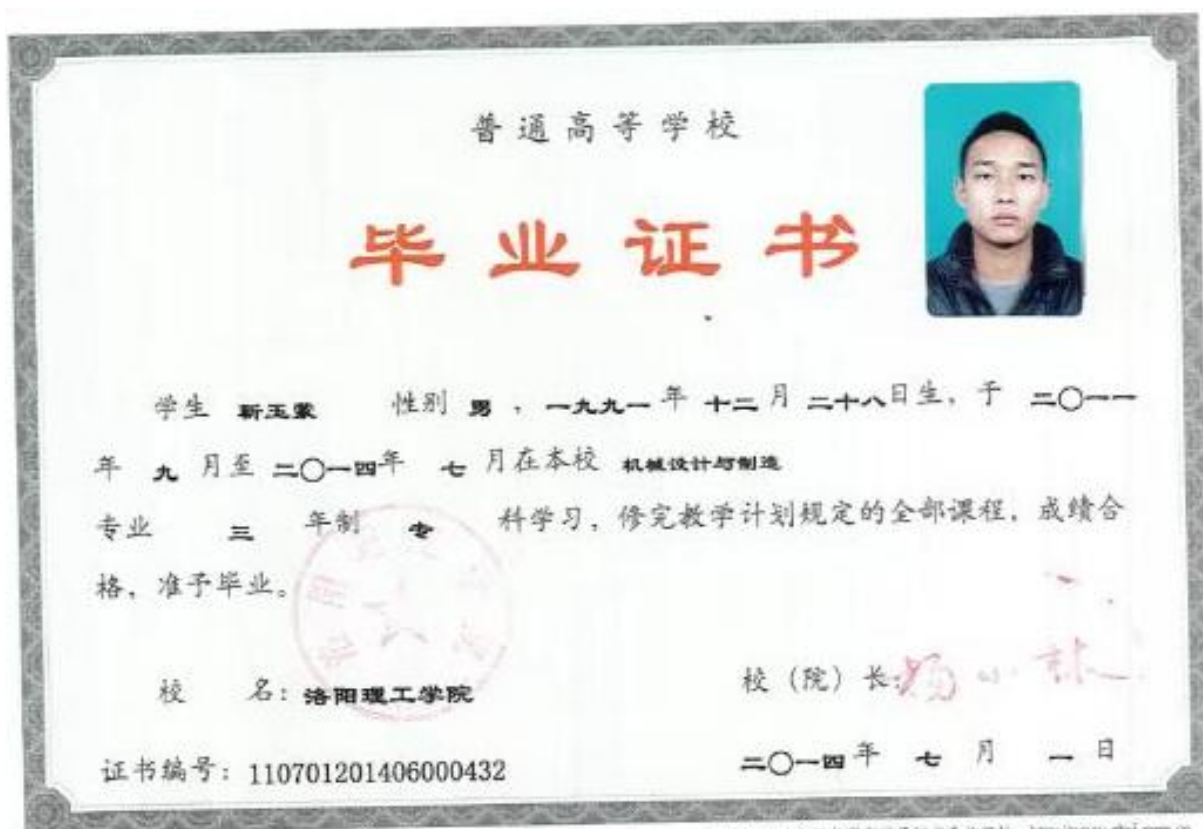 普通高等学校
毕业证书
学生 靳玉蒙 性别 男 , 一九九一 年 十二 月 二十八 日生, 于 二〇一一
年 九 月至 二〇一四 年 七 月在本校 机械设计与制造
专业 三 年制 专 科学习, 修完教学计划规定的全部课程, 成绩合
格, 准予毕业。
校 名: 洛阳理工学院
校 (院) 长:
证书编号: 110701201406000432
二〇一四 年 七 月 一 日